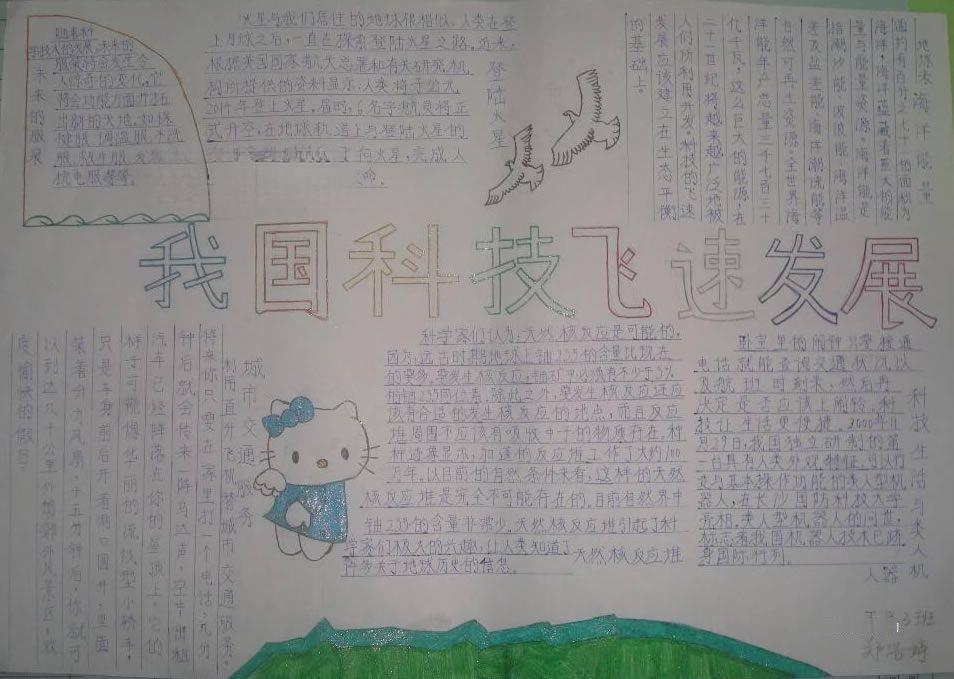 未来的服装
随着科
学技术的发展,未来的
服装将会发生令
人惊奇的变化,它
将会功能方面开拓
当别的天地,如保
健服、调温服、不洗
服、
抗电服等等。
登陆火星
火星与我们居住的地球很相似,人类在登
上月球之后,一直在探索登陆火星之路。近来,
根据美国国家航天总署和有关研究机
构所提供的资料显示:人类将于公元
2014年登上火星。届时,6名宇航员将正
式升空,在地球轨道上与登陆火星的
了向火星,完成人
命。
地球未来海洋能量
面约有百分之七十一的面积为
海洋,海洋蕴藏着巨大的能
量与能量资源。海洋能是
指潮汐能、波浪能、海洋温
差及盐差能、海洋潮流能等
自然可再生资源。全世界海
洋能年产总量三千七百三十
亿千瓦,这么巨大的能源,在
二十一世纪将越来越广泛地被
人们所利用开发。科技的飞速
发展应该建立在生态平衡
的基础上。
我国科技飞速发展
城市交通服务
利用直升飞机替城市交通服务。
将来你只要在家里打一个电话,九分
钟后就会传来一阵马达声,空中出租
汽车已经降落在你的屋顶上,它的
样子可能像华丽的流线型小轿车,
只是车身前后开着两口圆井,里面
装着升力风扇。十五分钟后,你就可
以到达几十公里外的郊外风景区,欢
度愉快的假日。
天然核反应堆
科学家们认为:天然核反应是可能的,
因为:远古时期地球上铀235的含量比现在
的要多。要发生核反应,铀矿中必须有不少于3%
的铀235同位素。除此之外,要发生核反应还应
该有合适的发生核反应的地点,而且反应
堆周围不应该有吸收中子的物质存在。种
种迹象显示,加蓬的反应堆工作了大约100
万年,以目前的自然条件来看,这样的天然
核反应堆是完全不可能存在的,目前自然界中
铀235的含量非常少。天然核反应堆引起了科
学家们极大的兴趣,让人类知道了
许多关于地球历史的信息。
科技生活与类人机
器人
卧室里的闹钟只要接通
电话就能查询交通状况以
及航班时刻来,然后再
决定是否应该上闹铃,科
技让生活更便捷。2000年11
月29日,我国独立研制的第
一台具有人类外观特征,可以行
走与基本操作功能的类人型机
器人,在长沙国防科技大学
亮相。类人型机器人的问世,
标志着我国机器人技术已跻
身国际行列。
3班